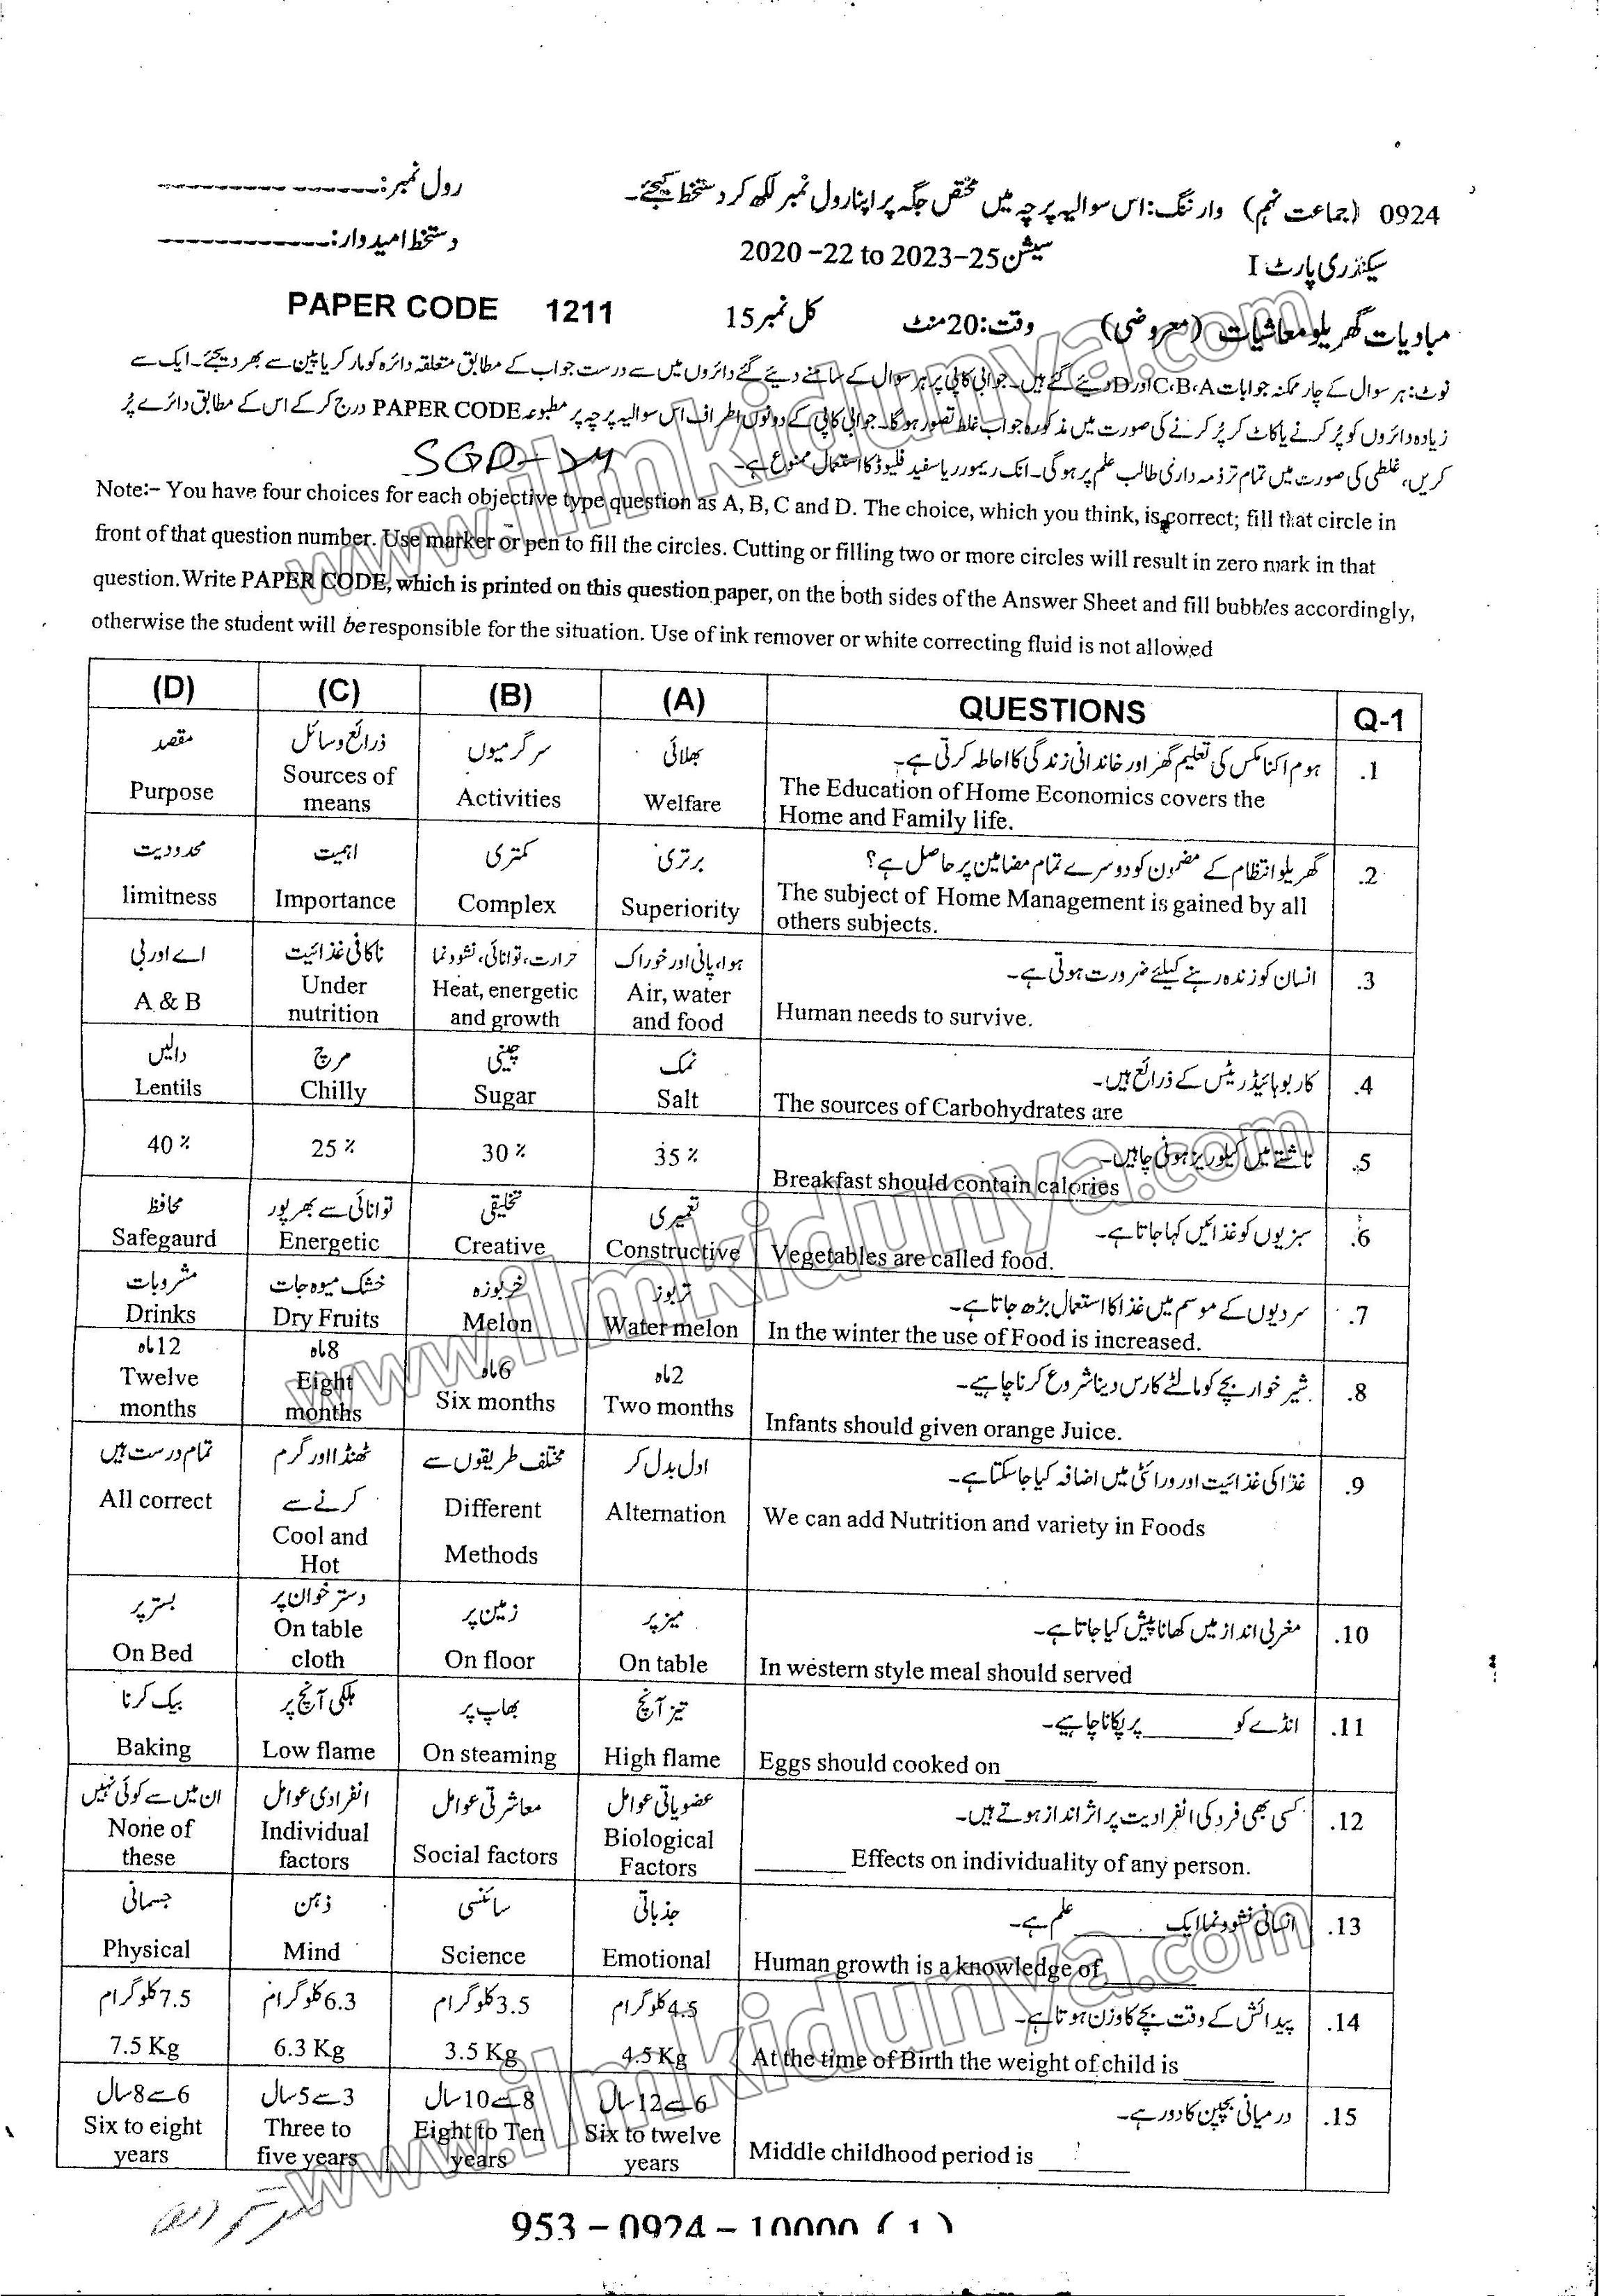 0924 (جماعت نہم) وارننگ: اس سوالیہ پرچہ میں مختص جگہ پر اپنا رول نمبر لکھ کر دستخط کیجئے۔
رول نمبر: ---------------
سیکنڈری پارٹ I
سیشن 2020-22 to 2023-25
دستخط امیدوار: ------------
مبادیات گھریلو معاشیات (معروضی) وقت: 20 منٹ کل نمبر 15
PAPER CODE 1211
نوٹ: ہر سوال کے چار ممکنہ جوابات C،B،A اور D دیئے گئے ہیں۔ جوابی کاپی پر ہر سوال کے سامنے دیئے گئے دائروں میں سے درست جواب کے مطابق متعلقہ دائرہ کو مارکر یا پین سے بھر دیجئے۔ ایک سے
زیادہ دائروں کو پُر کرنے یا کاٹ کر پُر کرنے کی صورت میں مذکورہ جواب غلط تصور ہوگا۔ جوابی کاپی کے دونوں اطراف اس سوالیہ پرچہ پر مطبوعہ PAPER CODE درج کر کے اس کے مطابق دائرے پُر
کریں، غلطی کی صورت میں تمام تر ذمہ داری طالب علم پر ہوگی۔ انک ریموور یا سفید فلیوڈ کا استعمال ممنوع ہے۔
SGD-24
Note:- You have four choices for each objective type question as A, B, C and D. The choice, which you think, is correct; fill that circle in
front of that question number. Use marker or pen to fill the circles. Cutting or filling two or more circles will result in zero mark in that
question. Write PAPER CODE, which is printed on this question paper, on the both sides of the Answer Sheet and fill bubbles accordingly,
otherwise the student will be responsible for the situation. Use of ink remover or white correcting fluid is not allowed
(D) (C) (B) (A) QUESTIONS Q-1
.1 ہوم اکنامکس کی تعلیم گھر اور خاندانی زندگی کا احاطہ کرتی ہے۔
The Education of Home Economics covers the
Home and Family life.
بھلائی
Welfare
سرگرمیوں
Activities
ذرائع وسائل
Sources of
means
مقصد
Purpose
.2 گھریلو انتظام کے مضمون کو دوسرے تمام مضامین پر حاصل ہے؟
The subject of Home Management is gained by all
others subjects.
برتری
Superiority
کمتری
Complex
اہمیت
Importance
محدودیت
limitness
.3 انسان کو زندہ رہنے کیلئے ضرورت ہوتی ہے۔
Human needs to survive.
ہوا، پانی اور خوراک
Air, water
and food
حرارت، توانائی، نشوونما
Heat, energetic
and growth
ناکافی غذائیت
Under
nutrition
اے اور بی
A & B
.4 کاربوہائیڈریٹس کے ذرائع ہیں۔
The sources of Carbohydrates are
نمک
Salt
چینی
Sugar
مرچ
Chilly
دالیں
Lentils
.5 ناشتے میں کیلوریز ہونی چاہیں۔
Breakfast should contain calories
35%
30%
25%
40%
.6 سبزیوں کو غذائیں کہا جاتا ہے۔
Vegetables are called food.
تعمیری
Constructive
تخلیقی
Creative
توانائی سے بھرپور
Energetic
محافظ
Safegaurd
.7 سردیوں کے موسم میں غذا کا استعمال بڑھ جاتا ہے۔
In the winter the use of Food is increased.
تربوز
Water melon
خربوزہ
Melon
خشک میوہ جات
Dry Fruits
مشروبات
Drinks
.8 شیر خوار بچے کو مالٹے کا رس دینا شروع کرنا چاہیے۔
Infants should given orange Juice.
2ماہ
Two months
6ماہ
Six months
8ماہ
Eight
months
12ماہ
Twelve
months
.9 غذا کی غذائیت اور ورائٹی میں اضافہ کیا جا سکتا ہے۔
We can add Nutrition and variety in Foods
ادل بدل کر
Alternation
مختلف طریقوں سے
Different
Methods
ٹھنڈا اور گرم
کرنے سے
Cool and
Hot
تمام درست ہیں
All correct
.10 مغربی انداز میں کھانا پیش کیا جاتا ہے۔
In western style meal should served
میز پر
On table
زمین پر
On floor
دستر خوان پر
On table
cloth
بستر پر
On Bed
.11 انڈے کو ________ پر پکانا چاہیے۔
Eggs should cooked on ________
تیز آنچ
High flame
بھاپ پر
On steaming
ہلکی آنچ پر
Low flame
بیک کرنا
Baking
.12 کسی بھی فرد کی انفرادیت پر اثر انداز ہوتے ہیں۔
________ Effects on individuality of any person.
عضویاتی عوامل
Biological
Factors
معاشرتی عوامل
Social factors
انفرادی عوامل
Individual
factors
ان میں سے کوئی نہیں
None of
these
.13 انسانی نشوونما ایک ________ علم ہے۔
Human growth is a knowledge of ________
جذباتی
Emotional
سائنسی
Science
ذہن
Mind
جسمانی
Physical
.14 پیدائش کے وقت بچے کا وزن ہوتا ہے۔
At the time of Birth the weight of child is ________
4.5 کلوگرام
4.5 Kg
3.5 کلوگرام
3.5 Kg
6.3 کلوگرام
6.3 Kg
7.5 کلوگرام
7.5 Kg
.15 درمیانی بچپن کا دور ہے۔
Middle childhood period is ________
6 سے 12 سال
Six to twelve
years
8 سے 10 سال
Eight to Ten
years
3 سے 5 سال
Three to
five years
6 سے 8 سال
Six to eight
years
953 - 0924 - 10000 (1)
www.ilmkidunya.com
www.ilmkidunya.com
www.ilmkidunya.com